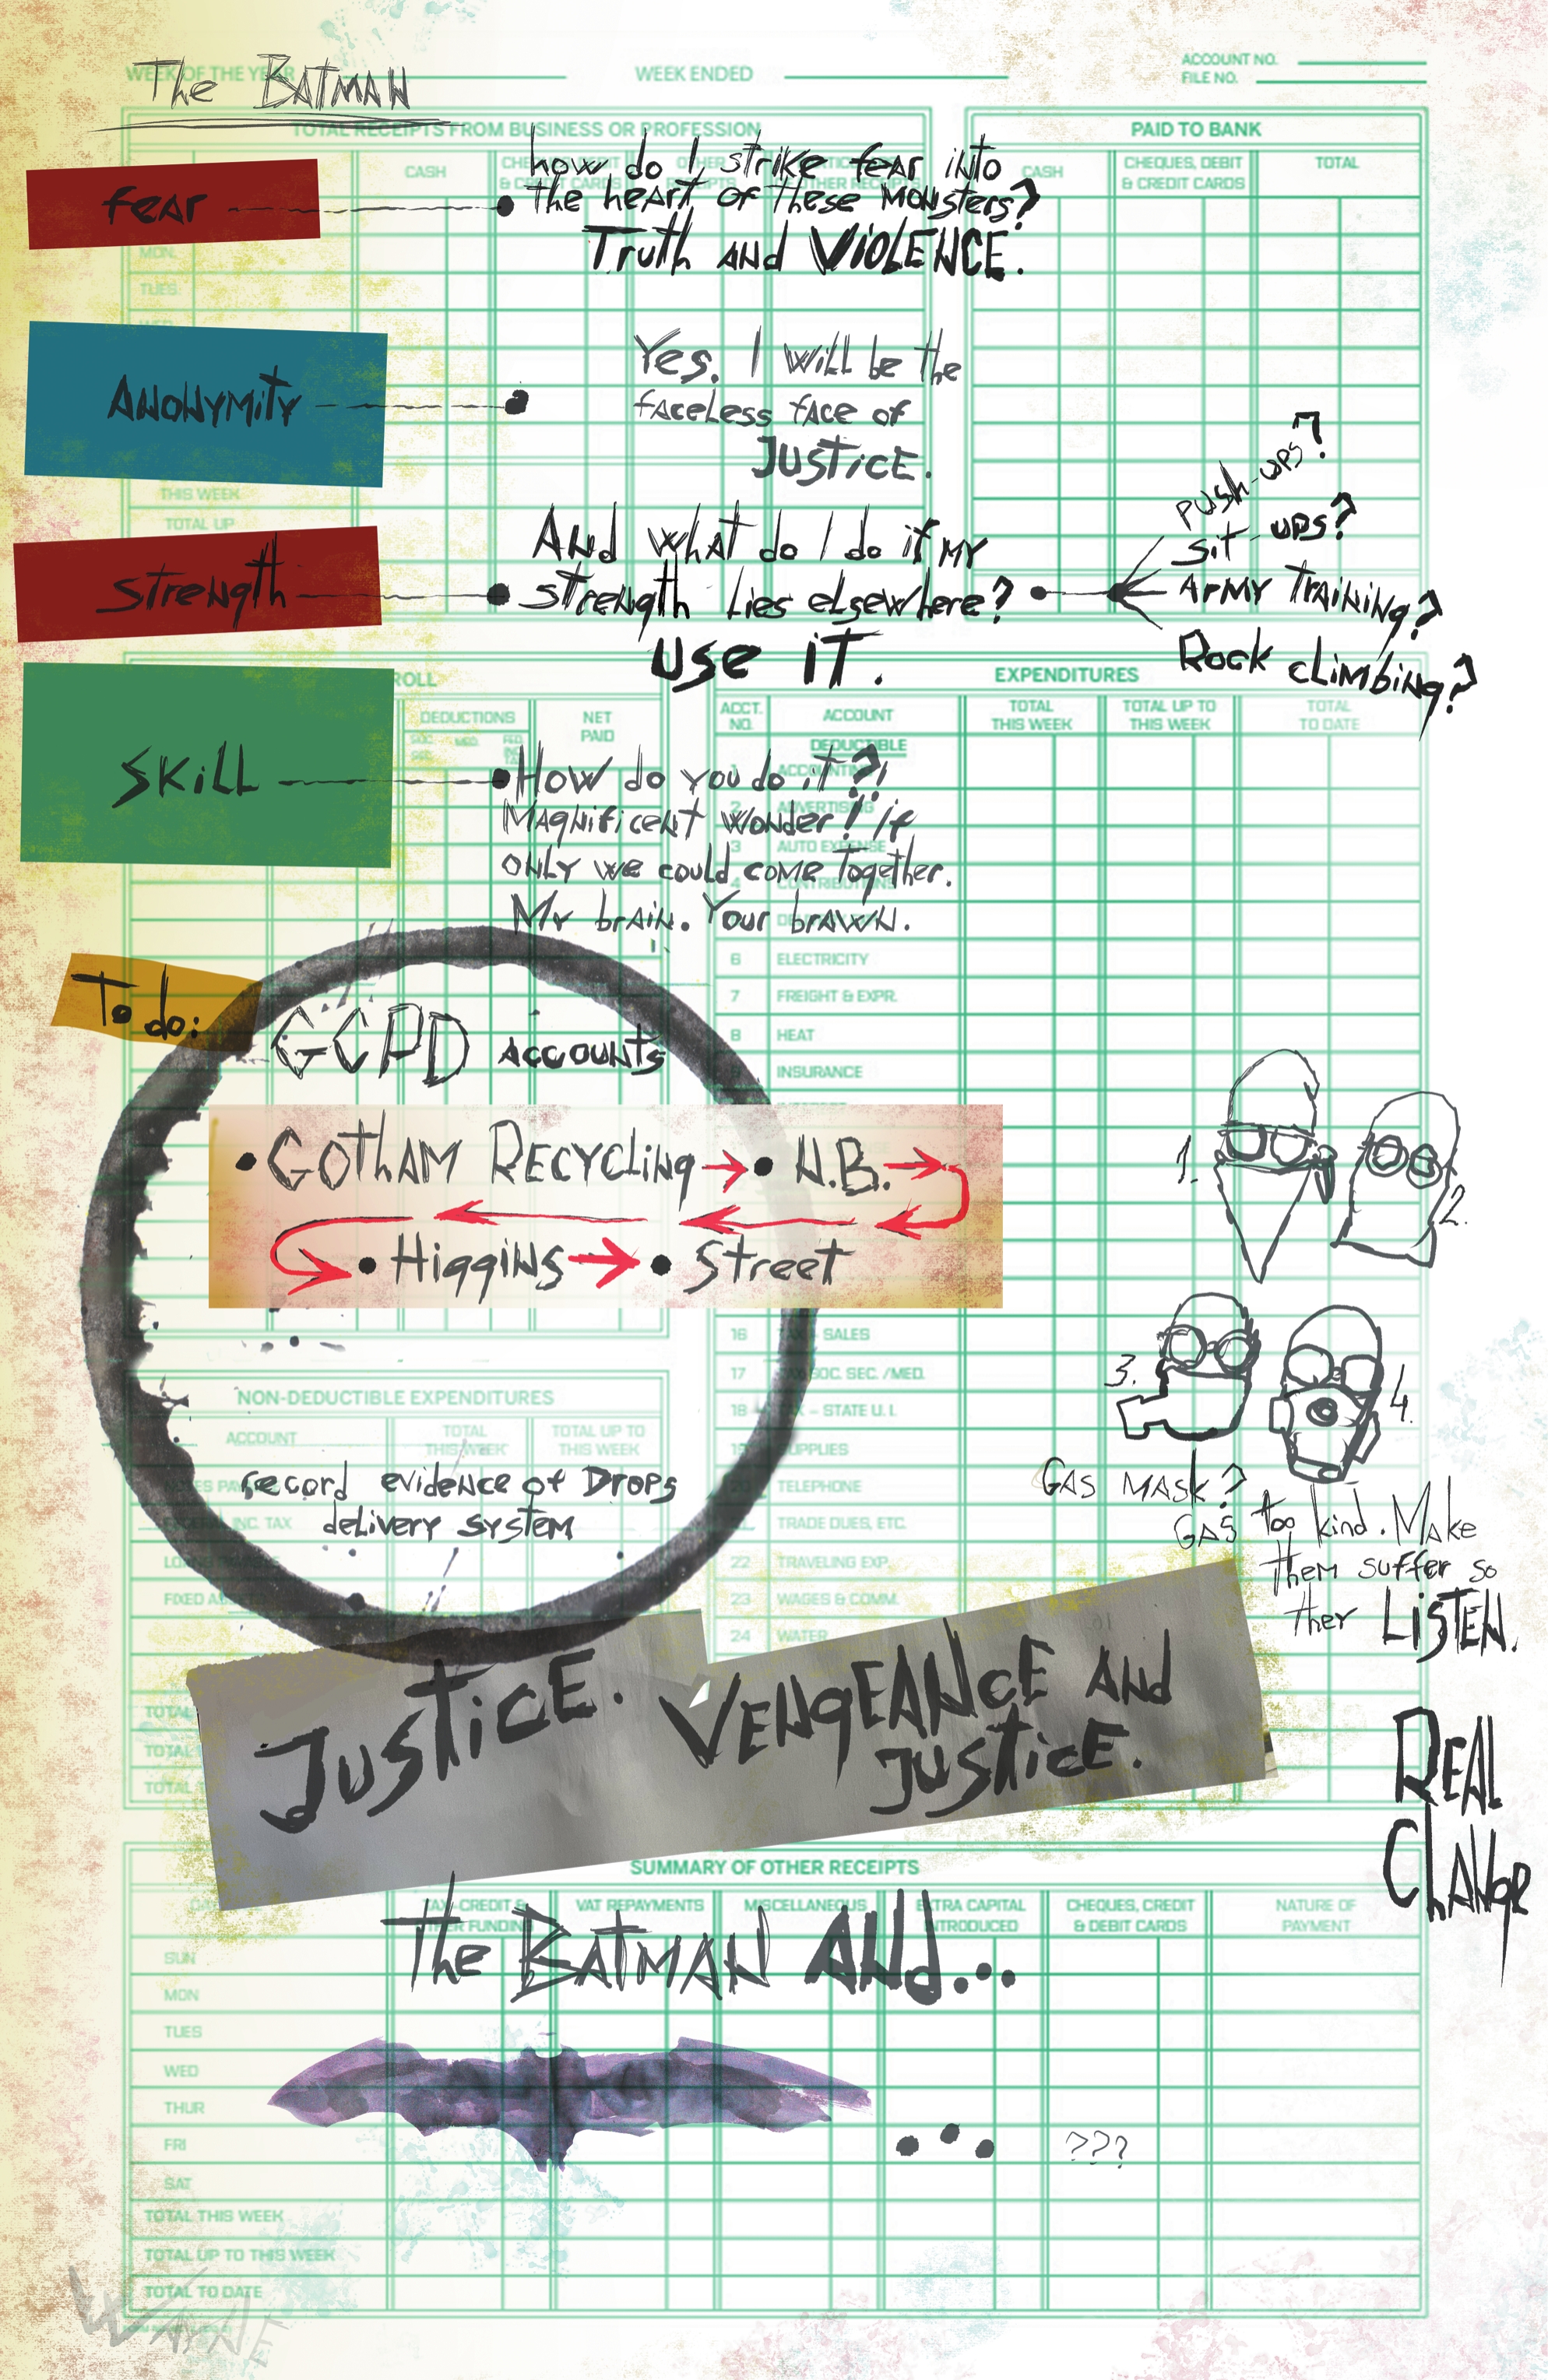 The BATMAN
WEEK OF THE YEAR
WEEK ENDED
ACCOUNT NO.
FILE NO.
TOTAL RECEIPTS FROM BUSINESS OR PROFESSION
PAID TO BANK
CASH
CASH
CHEQUES, DEBIT
& CREDIT CARDS
TOTAL
feAr
how do I strike feAr into
the heArt of these Monsters?
Truth AND VIOLENCE.
MON.
TUES
ANONYMITY
Yes. I will be the
fAceless fAce of
JUSTICE.
THIS WEEK
TOTAL UP
Strength
ANd whAt do I do if MY
strength lies elsewhere?
Use iT.
push-ups?
sit-ups?
ArMY TrAiNiNg?
Rock climbing?
EXPENDITURES
DEDUCTIONS
NET
PAID
ACCT.
NO.
ACCOUNT
TOTAL
THIS WEEK
TOTAL UP TO
THIS WEEK
TOTAL
TO DATE
DEDUCTIBLE
SKiLL
How do you do it?!
MAgnificent wonder! If
ONLY we could come together.
My brAiN. Your brAwN.
6 ELECTRICITY
7 FREIGHT & EXPR.
8 HEAT
INSURANCE
To do:
GCPD Accounts
GOThAM RECYcliNg
N.B.
HiggiNs
Street
1.
2.
3.
4.
16 TAX - SALES
17 SOC. SEC. /MED.
18 - STATE U. I.
19 SUPPLIES
TELEPHONE
TRADE DUES, ETC.
22 TRAVELING EXP.
23 WAGES & COMM.
24 WATER
NON-DEDUCTIBLE EXPENDITURES
ACCOUNT
TOTAL
THIS WEEK
TOTAL UP TO
THIS WEEK
record evidence of Drops
delivery system
INC. TAX
GAS MASK?
GAS too kind. Make
theM suffer so
they LiSTEN.
JUSTiCE.
VENgEANcE ANd
JUSTicE.
REAL
ChANgE
TOTAL
TOTAL
TOTAL
SUMMARY OF OTHER RECEIPTS
VAT REPAYMENTS
MISCELLANEOUS
EXTRA CAPITAL
INTRODUCED
CHEQUES, CREDIT
& DEBIT CARDS
NATURE OF
PAYMENT
The BATMAN ANd...
SUN
MON
TUES
WED
THUR
FRI
SAT
???
TOTAL THIS WEEK
TOTAL UP TO THIS WEEK
TOTAL TO DATE
WAYNE